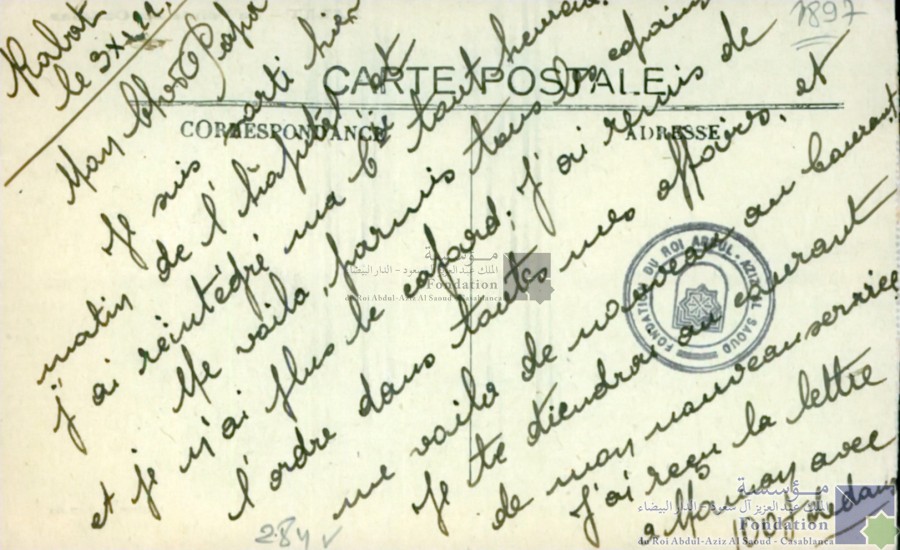 1897
Rabat
le
CARTE POSTALE
CORRESPONDANCE
ADRESSE
Mon Cher Papa
Je suis sorti hier
matin de l'hôpital et
j'ai réintégré ma tout heureux.
Me voila parmis tous les copains
et je n'ai plus le cafard; j'ai remis de
l'ordre dans toutes mes affaires, et
me voila de nouveau au courant
Je te tiendrai au courant
de mon nouveau service
J'ai reçu la lettre
Maman avec
dedans
284
FONDATION DU ROI ABDUL-AZIZ AL SAOUD
مؤسسة
الملك عبد العزيز آل سعود - الدار البيضاء
Fondation
du Roi Abdul-Aziz Al Saoud - Casablanca
مؤسسة
الملك عبد العزيز آل سعود - الدار البيضاء
Fondation
du Roi Abdul-Aziz Al Saoud - Casablanca